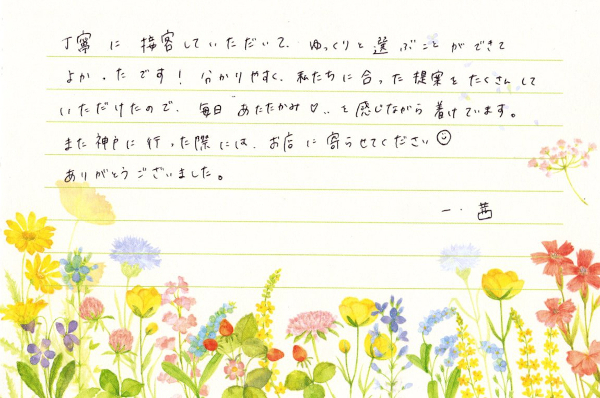 丁寧に接客していただいて、ゆっくりと選ぶことができて
よかったです! 分かりやすく、私たちに合った提案をたくさんして
いただけたので、毎日“あたたかみ♡”を感じながら着けています。
また神戸に行った際には、お店に寄らせてください☺
ありがとうございました。
一・茜